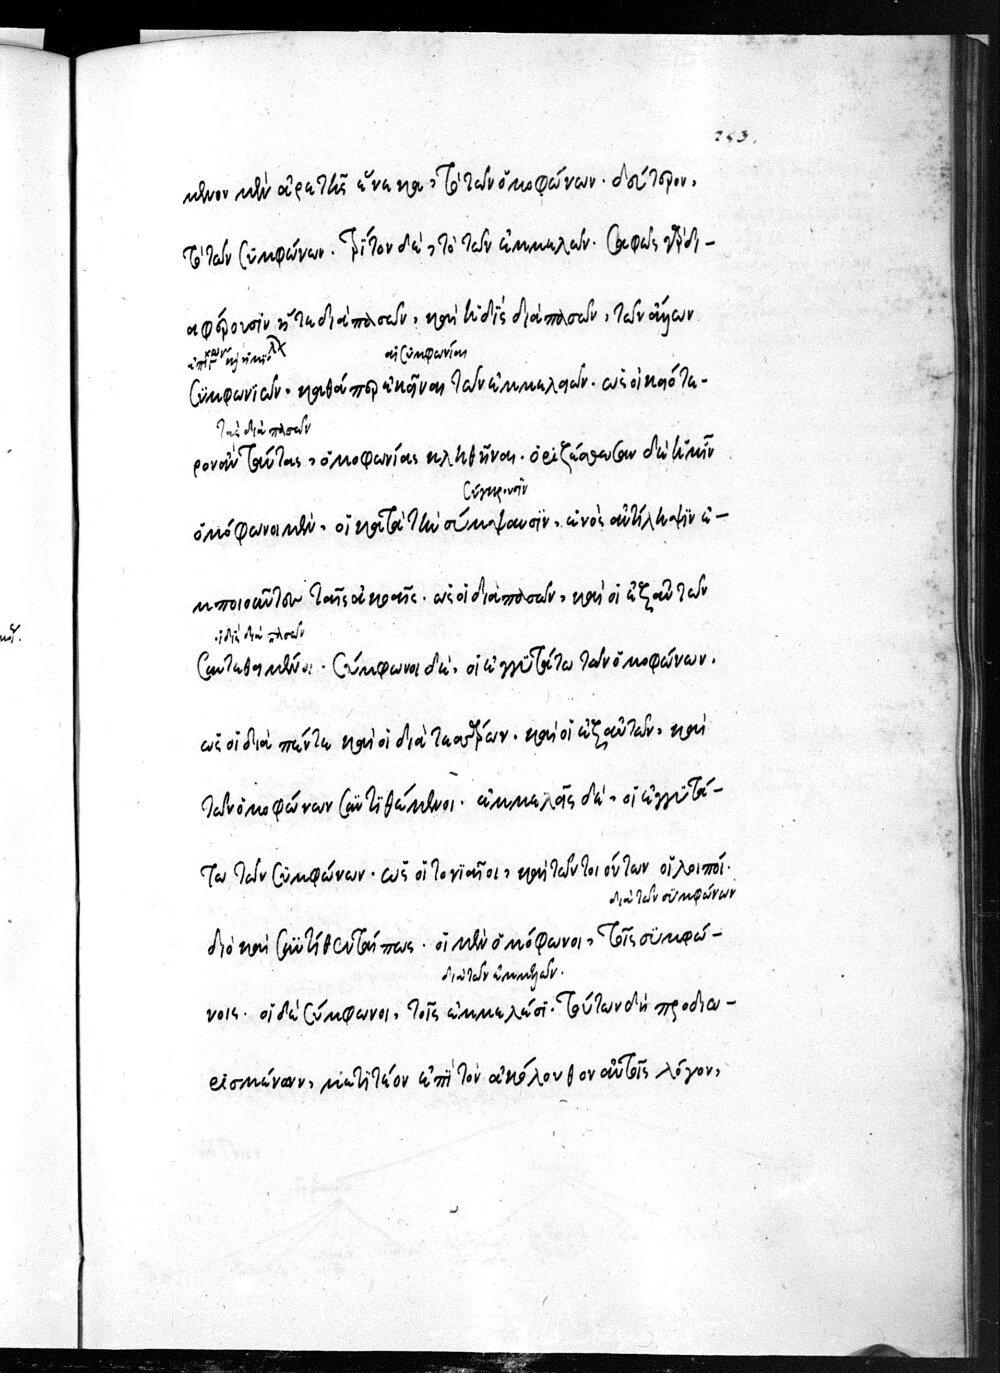 μενον μὲν ἀρετῆς ἕνεκα, τὸ τῶν ὁμοφώνων· δεύτερον,
τὸ τῶν συμφώνων· τρίτον δὲ, τὸ τῶν ἐμμελῶν. σαφῶς γὰρ δι-
αφέρουσιν ἥ τε διαπασῶν, καὶ ἡ δὶς διαπασῶν, τῶν ἄλλων
αἱ συμφωνίαι
συμφωνιῶν, καθάπερ ἐκεῖναι τῶν ἐμμελειῶν· ὡς οἰκειότε-
τὰς διαπασῶν
ρον ἂν ταύτας, ὁμοφωνίας κληθῆναι. ὁριζέσθωσαν δὲ ἡμῖν
σύγκρουσιν
ὁμόφωνοι μὲν, οἱ κατὰ τὴν σύμψαυσιν, ἑνὸς ἀντίληψιν ἐ-
μποιοῦντες ταῖς ἀκοαῖς· ὡς οἱ διαπασῶν, καὶ οἱ ἐξ αὐτῶν
οἱ δὶς διαπασῶν
συντιθέμενοι. σύμφωνοι δὲ, οἱ ἐγγυτάτω τῶν ὁμοφώνων,
ὡς οἱ διὰ πέντε καὶ οἱ διὰ τεσσάρων. καὶ οἱ ἐξ αὐτῶν, καὶ
τῶν ὁμοφώνων συντιθέμενοι. ἐμμελεῖς δὲ, οἱ ἐγγυτά-
τω τῶν συμφώνων· ὡς οἱ τονιαῖοι, καὶ τῶν τοιούτων οἱ λοιποί.
διὰ τῶν συμφώνων
διὸ καὶ συντίθενταί πως. οἱ μὲν ὁμόφωνοι, τοῖς συμφώ-
διὰ τῶν ἐμμελῶν.
νοις. οἱ δὲ σύμφωνοι, τοῖς ἐμμελέσι. τούτων δὴ προδιω-
ρισμένων, μετιτέον ἐπὶ τὸν ἀκόλουθον αὐτοῖς λόγον,